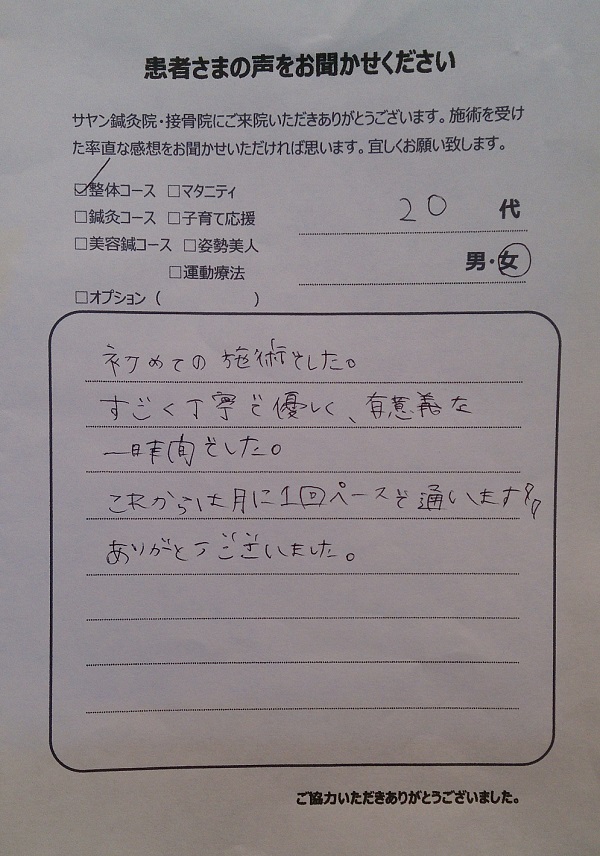 患者さまの声をお聞かせください
サヤン鍼灸院・接骨院にご来院いただきありがとうございます。施術を受け
た率直な感想をお聞かせいただければ思います。宜しくお願い致します。
☑整体コース □マタニティ
□鍼灸コース □子育て応援
□美容鍼コース □姿勢美人
□運動療法
□オプション（ ）
20 代
男・女
初めての施術でした。
すごく丁寧で優しく、有意義な
一時間でした。
これからは月に1回ペースで通います!!
ありがとうございました。
ご協力いただきありがとうございました。